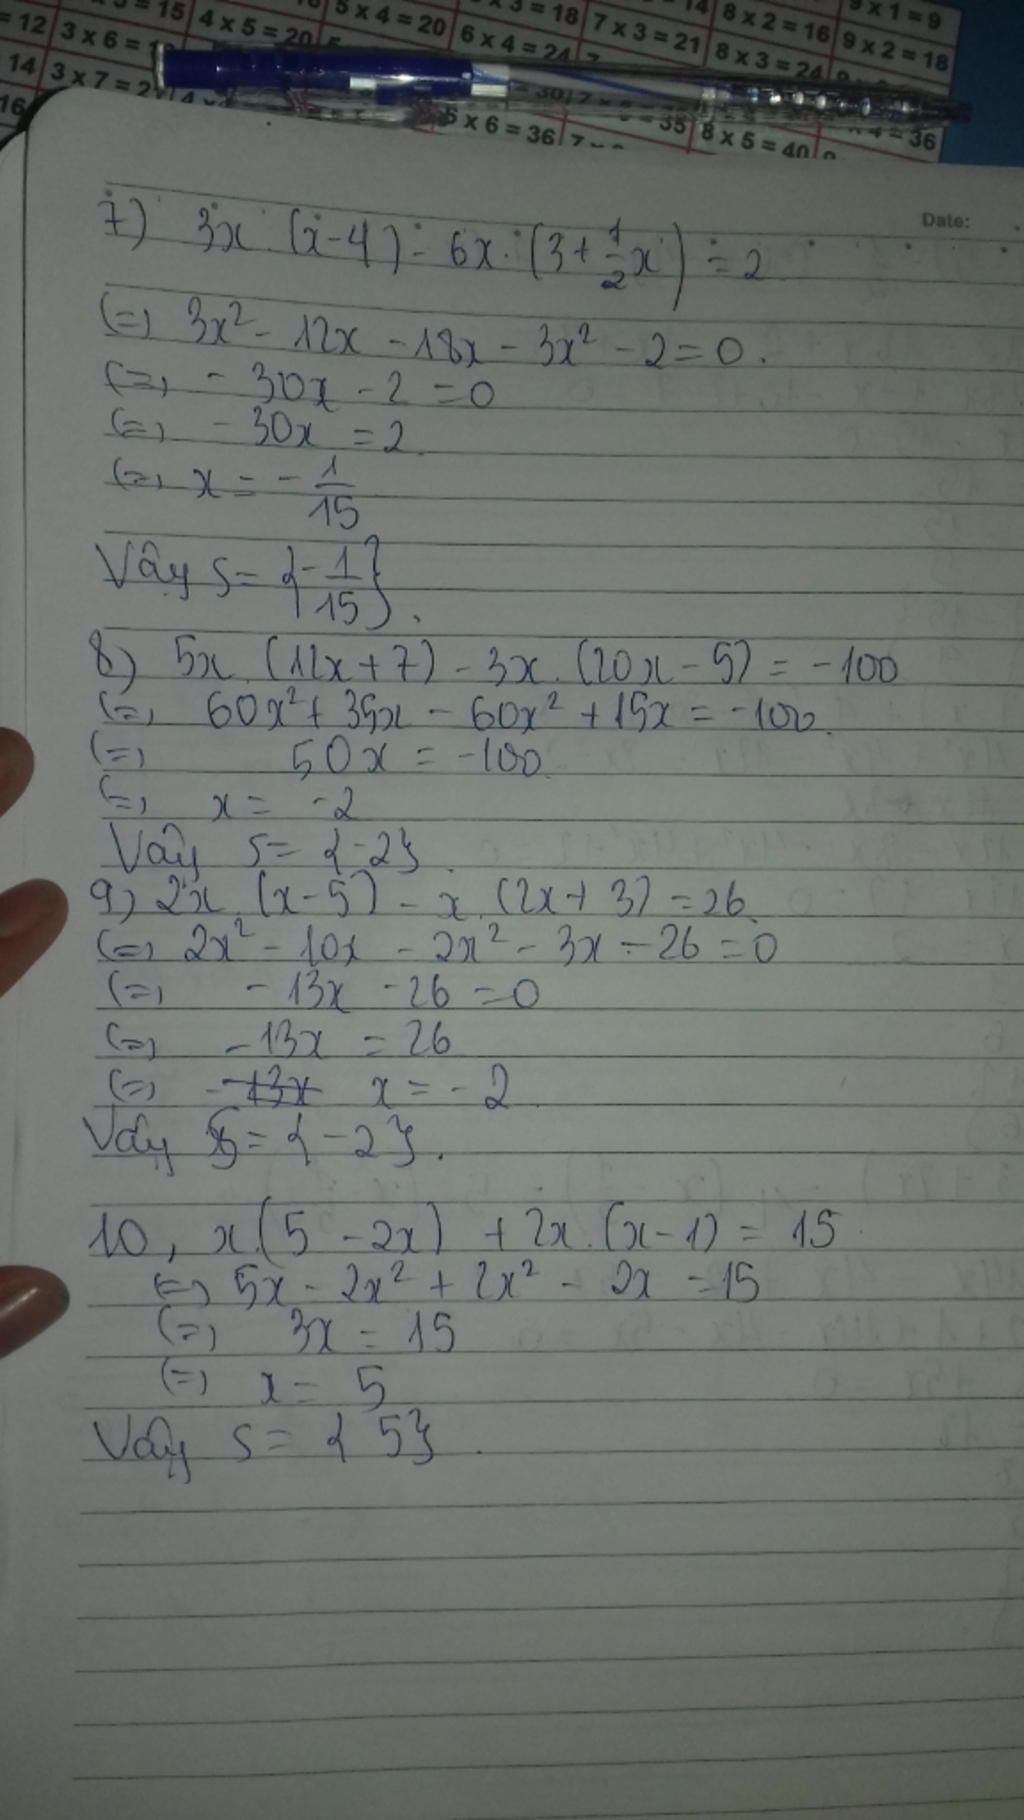 3 x 6 = 1
4 x 5 = 20
5 x 4 = 20
x 3 = 18
6 x 4 = 24
7 x 3 = 21
8 x 2 = 16
9 x 1 = 9
9 x 2 = 18
8 x 3 = 24
3 x 7 = 2
5 x 6 = 36
= 35
8 x 5 = 40
= 36
Date:
7) 3x.(x-4) - 6x.(3+1/2x) = 2
(=) 3x² - 12x - 18x - 3x² - 2 = 0.
(=) - 30x - 2 = 0
(=) - 30x = 2
(=) x = - 1/15
Vậy S = {-1/15}.
8) 5x.(12x+7) - 3x.(20x-5) = -100
(=) 60x² + 35x - 60x² + 15x = -100.
(=) 50x = -100
(=) x = -2
Vậy S = {-2}
9) 2x.(x-5) - x.(2x+3) = 26.
(=) 2x² - 10x - 2x² - 3x - 26 = 0
(=) - 13x - 26 = 0
(=) - 13x = 26
(=) -13x x = -2
Vậy S = {-2}.
10, x(5-2x) + 2x.(x-1) = 15
(=) 5x - 2x² + 2x² - 2x = 15
(=) 3x = 15
(=) x = 5
Vậy S = {5}.